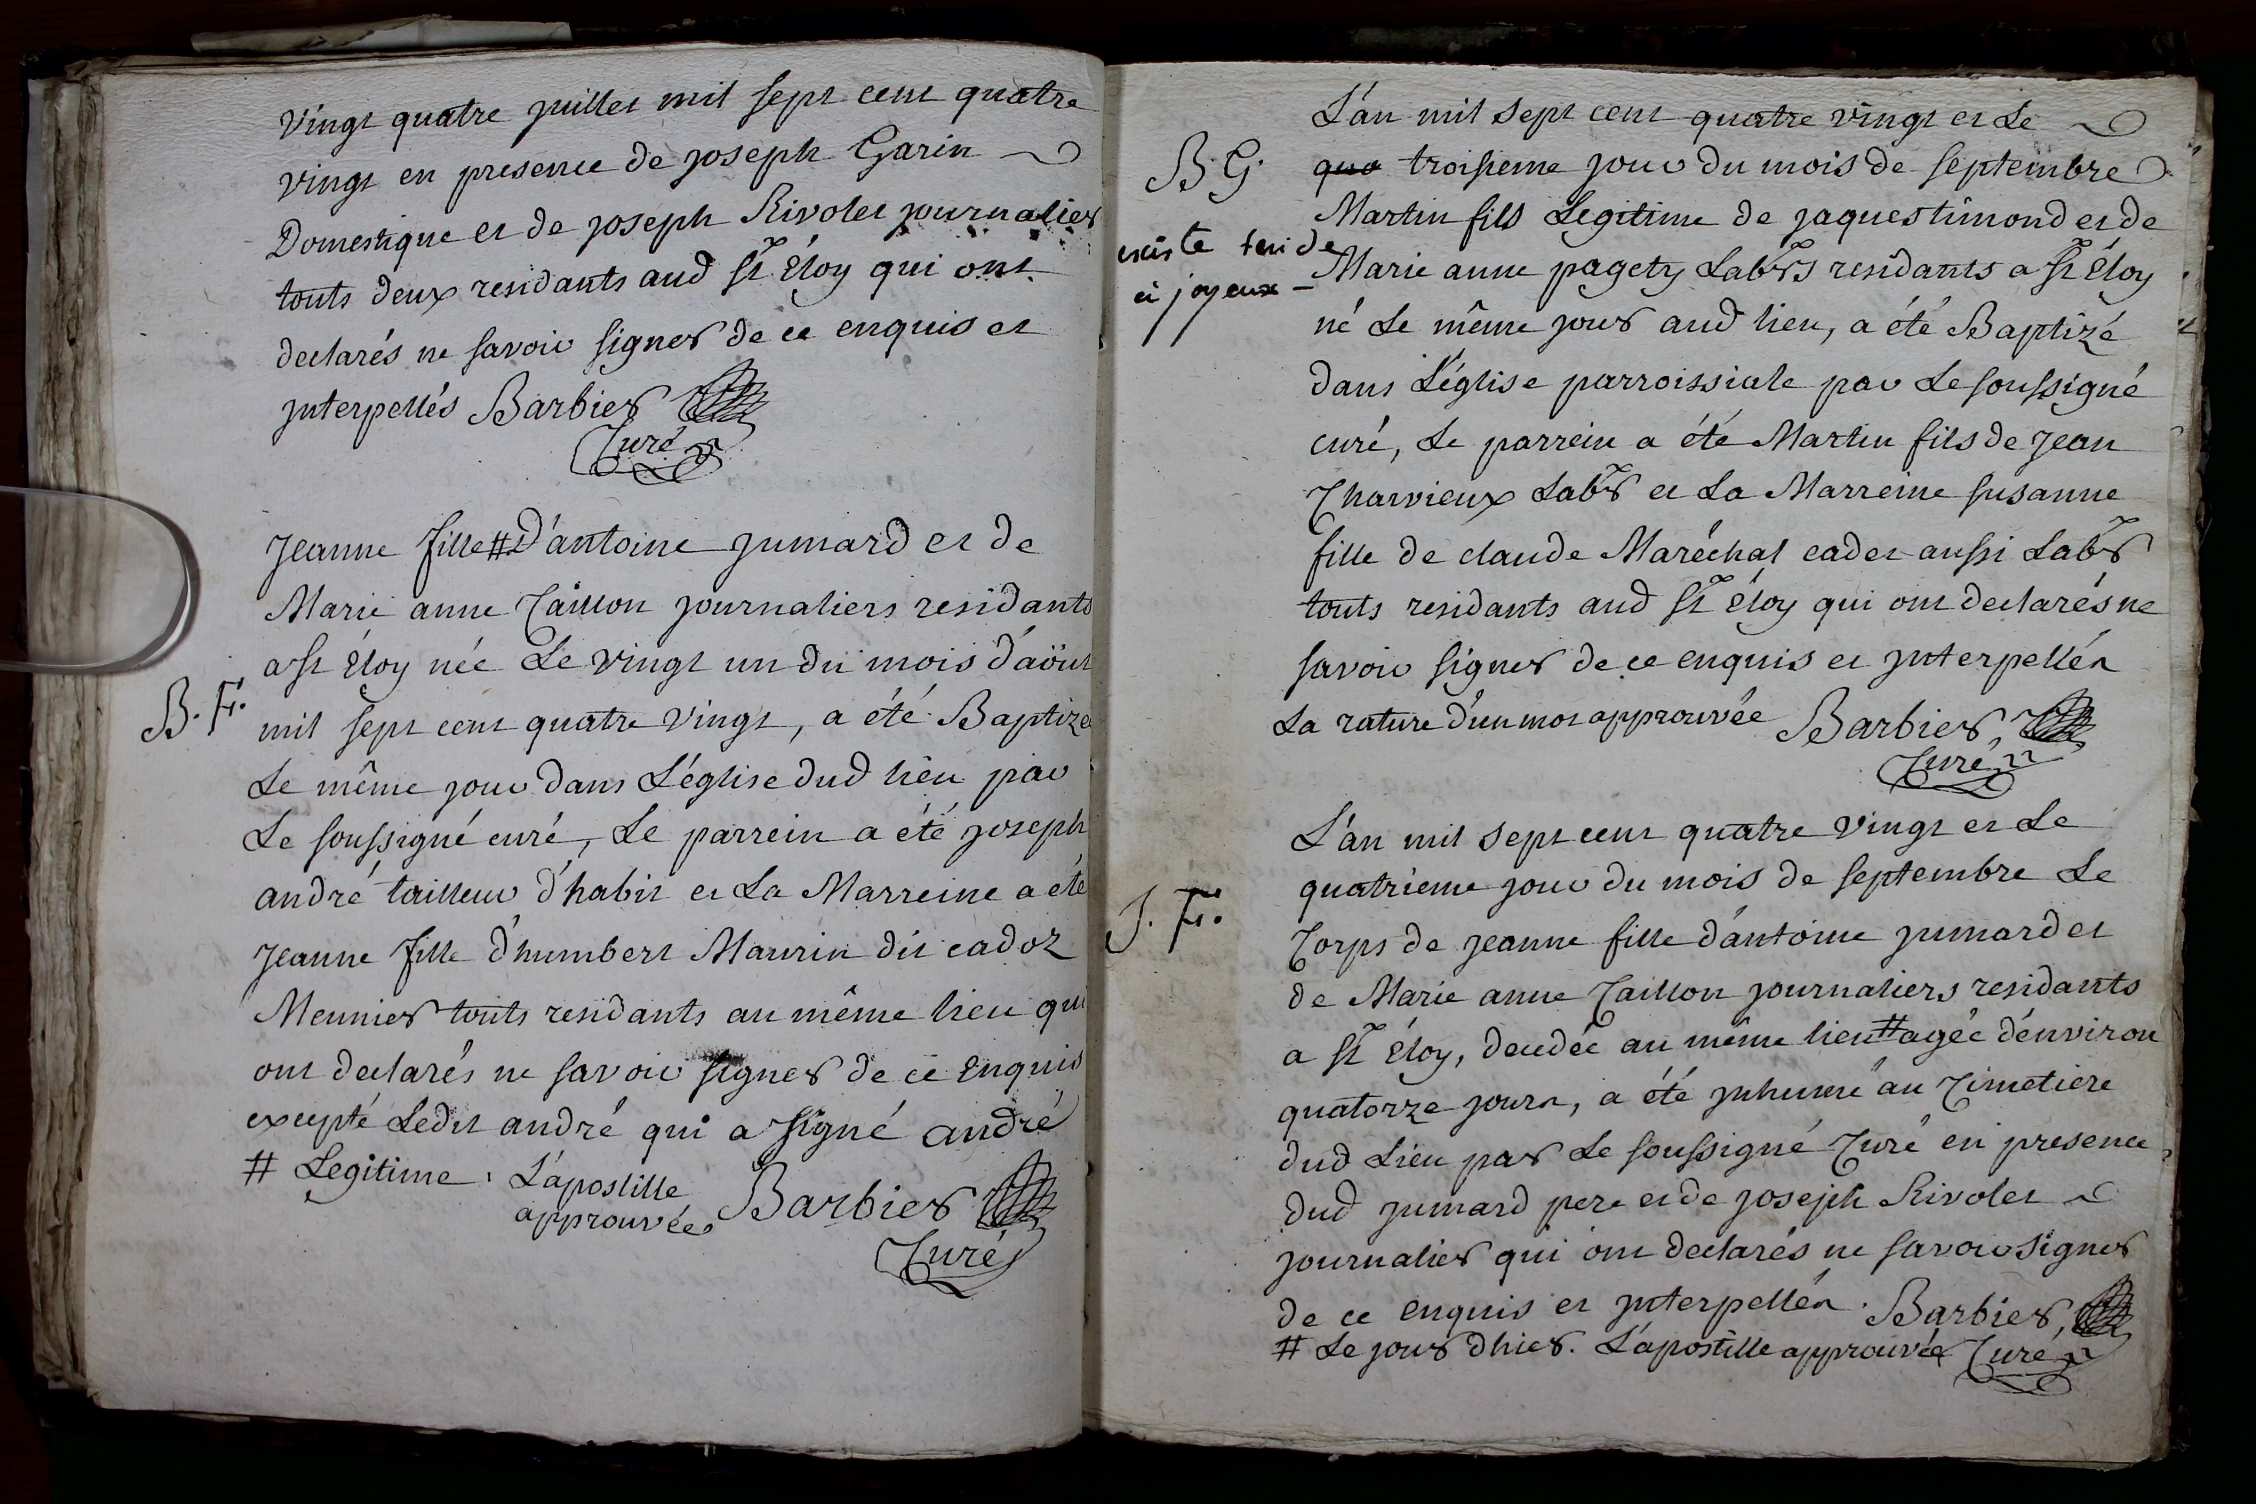 Vingt quatre juillet mil sept cent quatre
vingt en presence de joseph Garin
Domestique et de joseph Rivolet journalier
touts deux residants aud St Éloy qui ont
declarés ne savoir signer de ce enquis et
jnterpellés Barbier
Curé
Jeanne fille # d'antoine jumard et de
Marie anne Caillon journaliers residants
a St Éloy née Le vingt un du mois d'aöut
B. F.
mil sept cent quatre vingt, a été Baptizé
Le même jour dans L'église dud lieu par
Le soussigné curé, Le parrein a été joseph
andré tailleur d'habit et La Marreine a été
Jeanne fille d'humbert Maurin dit cadoz
Meunier touts residants au même lieu qui
ont declarés ne savoir signer de ce enquis
excepté Ledit andré qui a signé andré
# Legitime. L'apostille
approuvée Barbier
Curé
L'an mil sept cent quatre vingt et Le
B. G.
quo troisieme jour du mois de septembre
Martin fils Legitime de jaques timond et de
Marie anne pagety Labrs residants a St Éloy
a joyeux
né Le même jour aud lieu, a été Baptizé
dans L'église parroissiale par Le soussigné
curé, Le parrein a été Martin fils de Jean
Charvieux Labr et La Marreine susanne
fille de claude Maréchal cadet aussi Labr
touts residants aud St Éloy qui ont declarés ne
savoir signer de ce enquis et jnterpellés
La rature d'un mot approuvée Barbier,
Curé
L'an mil sept cent quatre vingt et Le
quatrieme jour du mois de septembre Le
S. F.
Corps de jeanne fille d'antoine jumard et
de Marie anne Caillon journaliers residants
a St Éloy, decedée au même lieu # agée d'environ
quatorze jours, a été jnhumé au Cimetiere
dud Lieu par Le soussigné Curé en presence
dud jumard pere et de joseph Rivolet
journalier qui ont declarés ne savoir signer
de ce enquis et jnterpellés. Barbier,
# Le jour dhier. L'apostille approuvée Curé